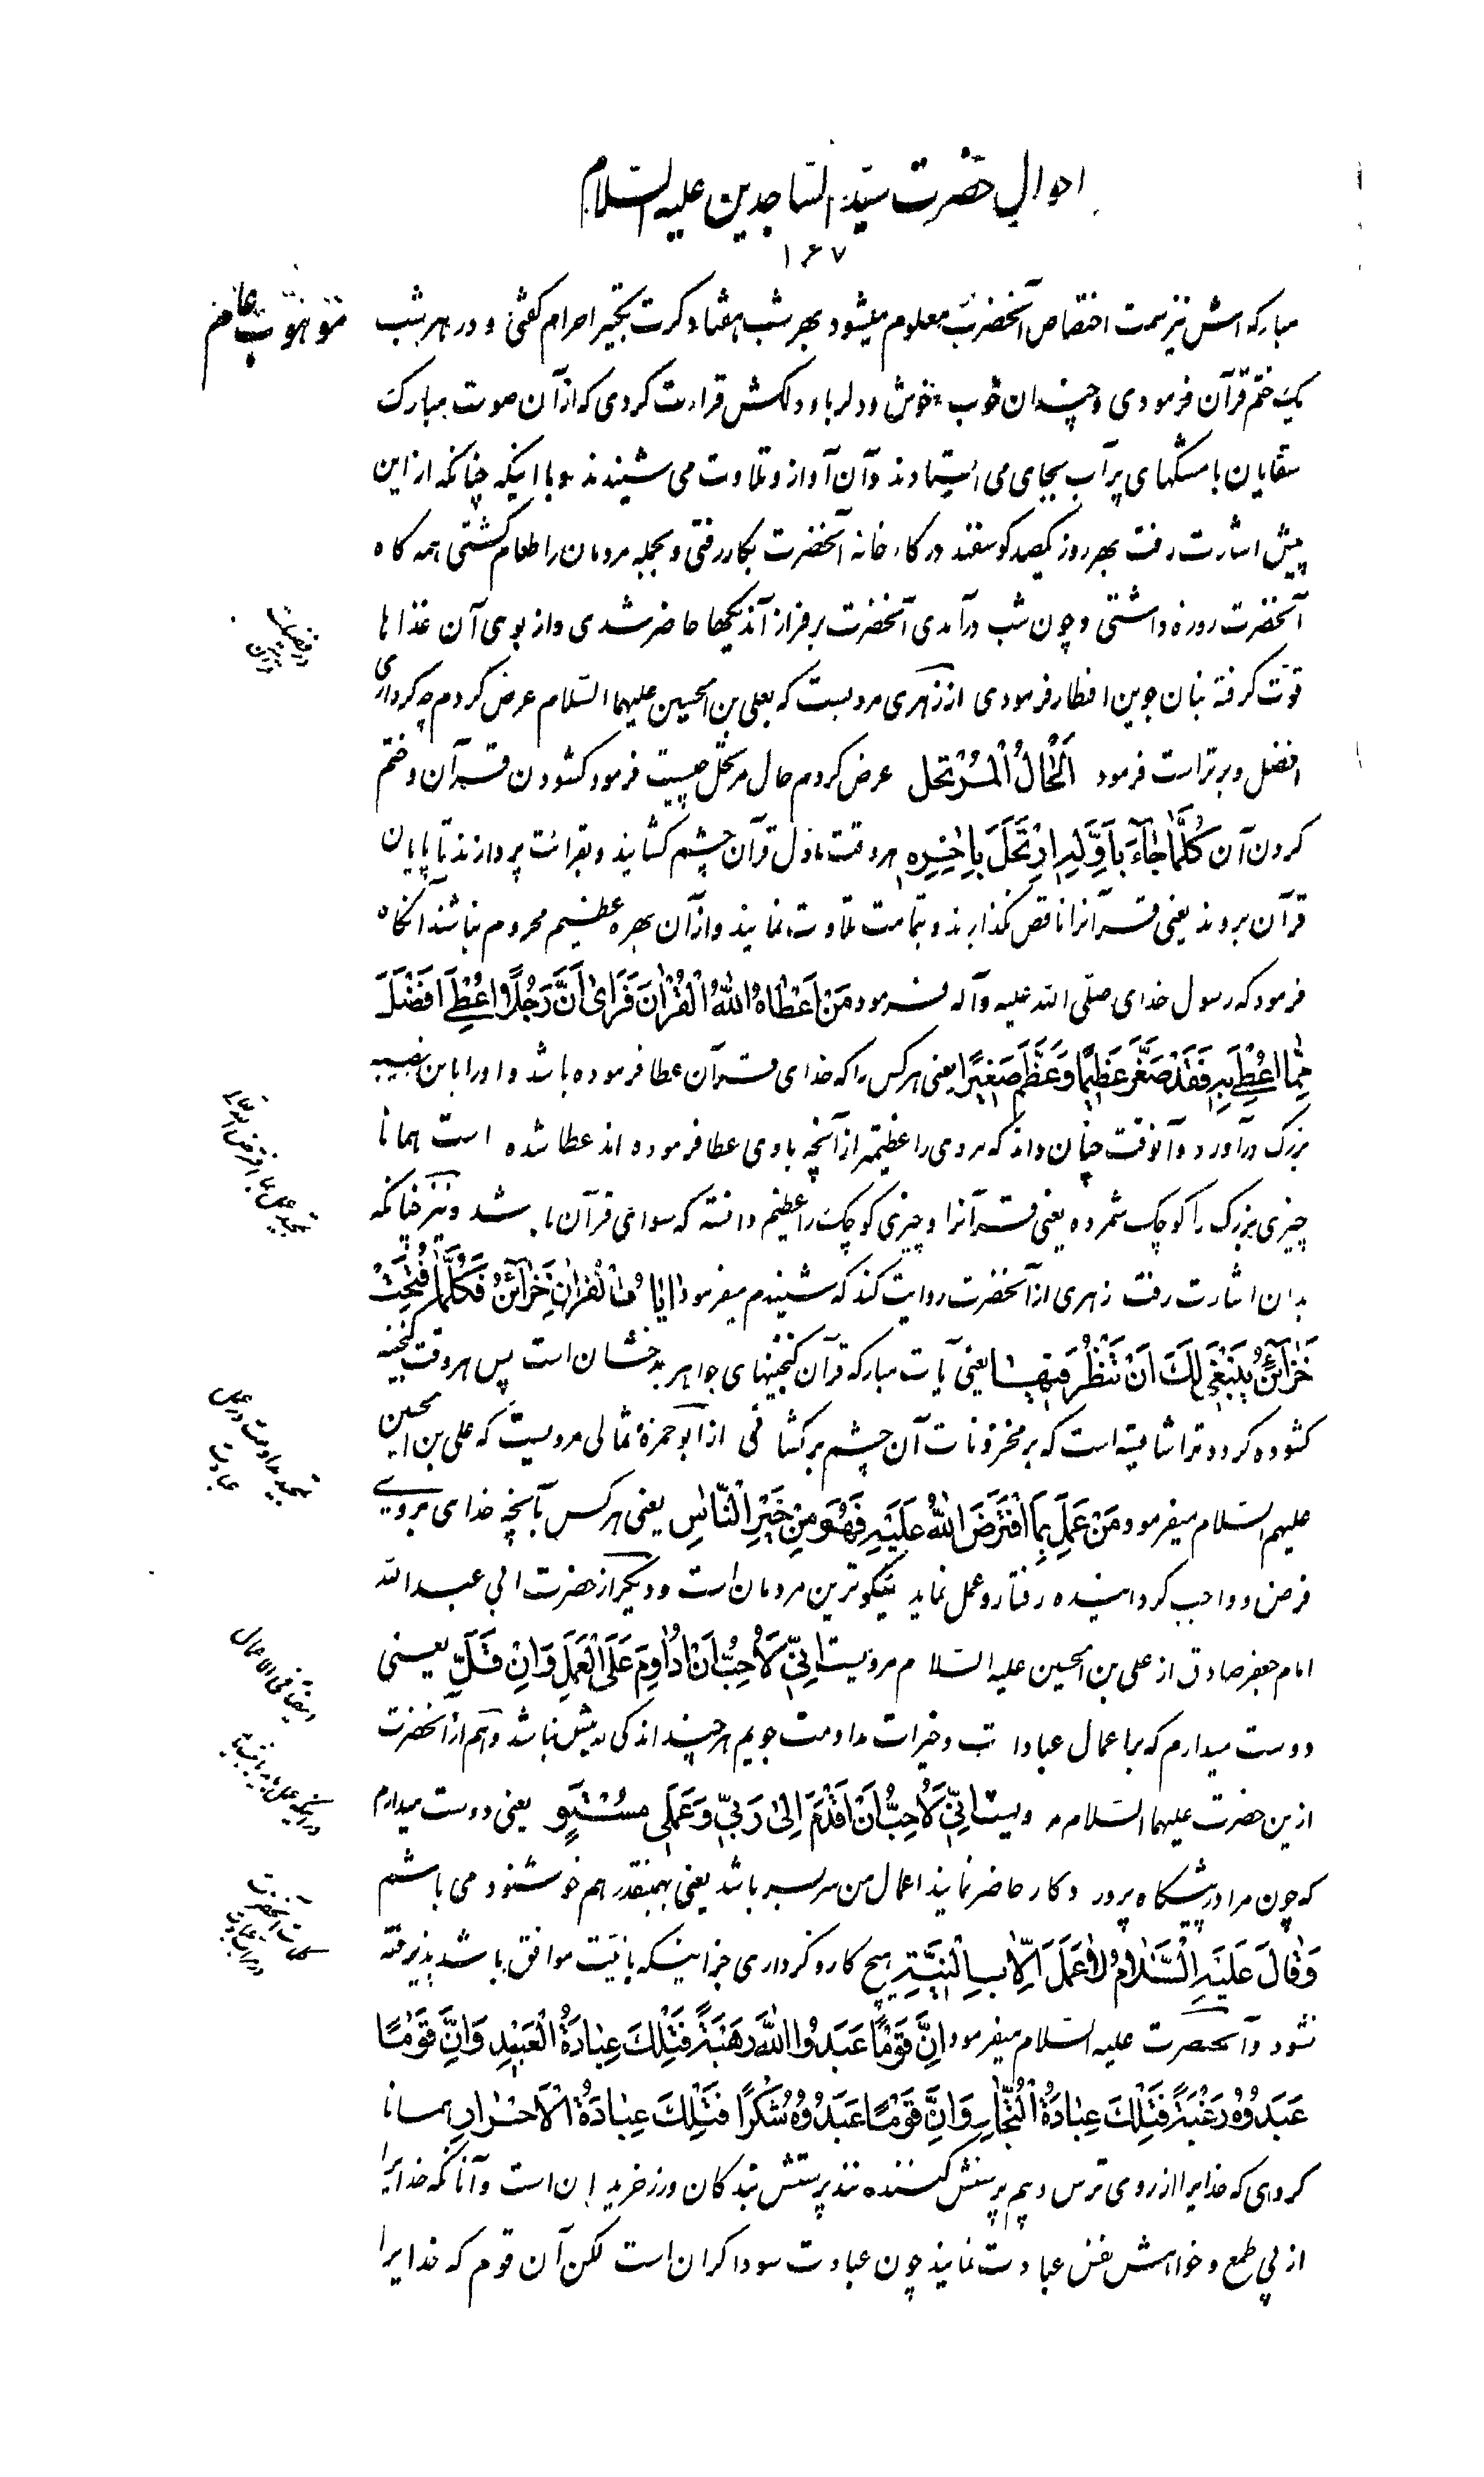 احوال حضرت سید الساجدین علیه السلام
۱۶۷
مبارکه اش نیز سمت اختصاص آنحضرت معلوم میشود بهر شب هفتاد کرت تکبیر احرام گفتی و در هر شب
یک ختم قرآن فرمودی و چندان خوب و خوش و دلربا و دلکش قراءت کردی که از آن صوت مبارک
سقایان با مشکهای پر آب بجای می ایستادند و آن آواز و تلاوت می شنیدند و با اینکه چنانکه از این
پیش اشارت رفت بهر روز یکصد کوسفند در کارخانه آنحضرت بکار رفتی و بجمله مردمان را طعام گشتی همه گاه
آنحضرت روزه داشتی و چون شب درآمدی آنحضرت بر فراز آندیکها حاضر شدی و از بوی آن غذاها
قوت گرفته بنان جوین افطار فرمودی از زهری مرویست که بعلی بن الحسین علیهما السلام عرض کردم چه کرداری
افضل و برتر است فرمود اَلْحٰالُّ الْمُرْتَحِل عرض کردم حال مرتحل چیست فرمود گشودن قرآن و ختم
کردن آن كُلَّمٰا جٰاءَ بِاَوَّلِهِ ارْتَحَلَ بِاٰخِرِهِ هر وقت باول قرآن چشم گشایند و بقرائت پردازند تا پایان
قرآن بروند یعنی قرآنرا ناقص نگذارند و بتمامت تلاوت نمایند و از آن بهره عظیم محروم نباشند آنگاه
فرمود که رسول خدای صلی الله علیه وآله فرمود مَنْ اَعْطٰاهُ اللّٰهُ الْقُرْاٰنَ فَرَاٰى اَنَّ رَجُلًا اُعْطِيَ اَفْضَلَ
مِمّٰا اُعْطِيَ فَقَدْ صَغَّرَ عَظِيمًا وَعَظَّمَ صَغِيرًا یعنی هر کس را که خدای قرآن عطا فرموده باشد و او را باین نصیبه
بزرگ درآورد و آنوقت چنان داند که مردی را عظیمتر از آنچه باوی عطا فرموده اند عطا شده است همانا
چیزی بزرگ را کوچک شمرده یعنی قرآنرا و چیزی کوچک را عظیم دانسته که سوای قرآن باشد و نیز چنانکه
بدان اشارت رفت زهری از آنحضرت روایت کند که شنیدم میفرمود اٰيٰاتُ الْقُرْاٰنِ خَزٰائِنُ فَكُلَّمٰا فُتِحَتْ
خَزٰائِنُ يَنْبَغِي لَكَ اَنْ تَنْظُرَ فِيهٰا یعنی آیات مبارکه قرآن گنجینهای جواهر بدخشان است پس هر وقت گنجینه
گشوده گردد ترا شایسته است که بر مخزونات آن چشم برگشائی از ابوحمزه ثمالی مرویست که علی بن الحسین
علیهم السلام میفرمود مَنْ عَمِلَ بِمَا افْتَرَضَ اللّٰهُ عَلَيْهِ فَهُوَ مِنْ خَيْرِ النّٰاسِ یعنی هر کس بآنچه خدای بروی
فرض و واجب گردانیده رفتار و عمل نماید نیکوترین مردمان است و دیگر از حضرت ابی عبدالله
امام جعفر صادق از علی بن الحسین علیه السلام مرویست اِنّي لَاُحِبُّ اَنْ اُدٰاوِمَ عَلَى الْعَمَلِ وَاِنْ قَلَّ یعنی
دوست میدارم که بر اعمال عبادات و خیرات مداومت جویم هر چند اندکی بیش نباشد و هم از آنحضرت
ازین حضرت علیهما السلام مرویست اِنّي لَاُحِبُّ اَنْ اَقْدَمَ اِلٰى رَبّي وَعَمَلي مُسْتَوٍ یعنی دوست میدارم
که چون مرا در پیشگاه پروردگار حاضر نمایند اعمال من سربسر باشد یعنی بهمینقدر هم خوشنود می باشم
وَقٰالَ عَلَيْهِ السَّلٰامُ لٰا عَمَلَ اِلّٰا بِالنِّيَّةِ هیچ کار و کرداری جز اینکه بانیت موافق باشد پذیرفته
نشود و آنحضرت علیه السلام میفرمود اِنَّ قَوْمًا عَبَدُوا اللّٰهَ رَهْبَةً فَتِلْكَ عِبٰادَةُ الْعَبِيدِ وَاِنَّ قَوْمًا
عَبَدُوهُ رَغْبَةً فَتِلْكَ عِبٰادَةُ التُّجّٰارِ وَاِنَّ قَوْمًا عَبَدُوهُ شُكْرًا فَتِلْكَ عِبٰادَةُ الْاَحْرٰارِ همانا
گروهی که خدایرا از روی ترس و بیم پرستش کننده اند پرستش بندگان و زرخریدان است و آنانکه خدایرا
از پی طمع و خواهش نفس عبادت نمایند چون عبادت سوداگران است لکن آن قوم که خدایرا